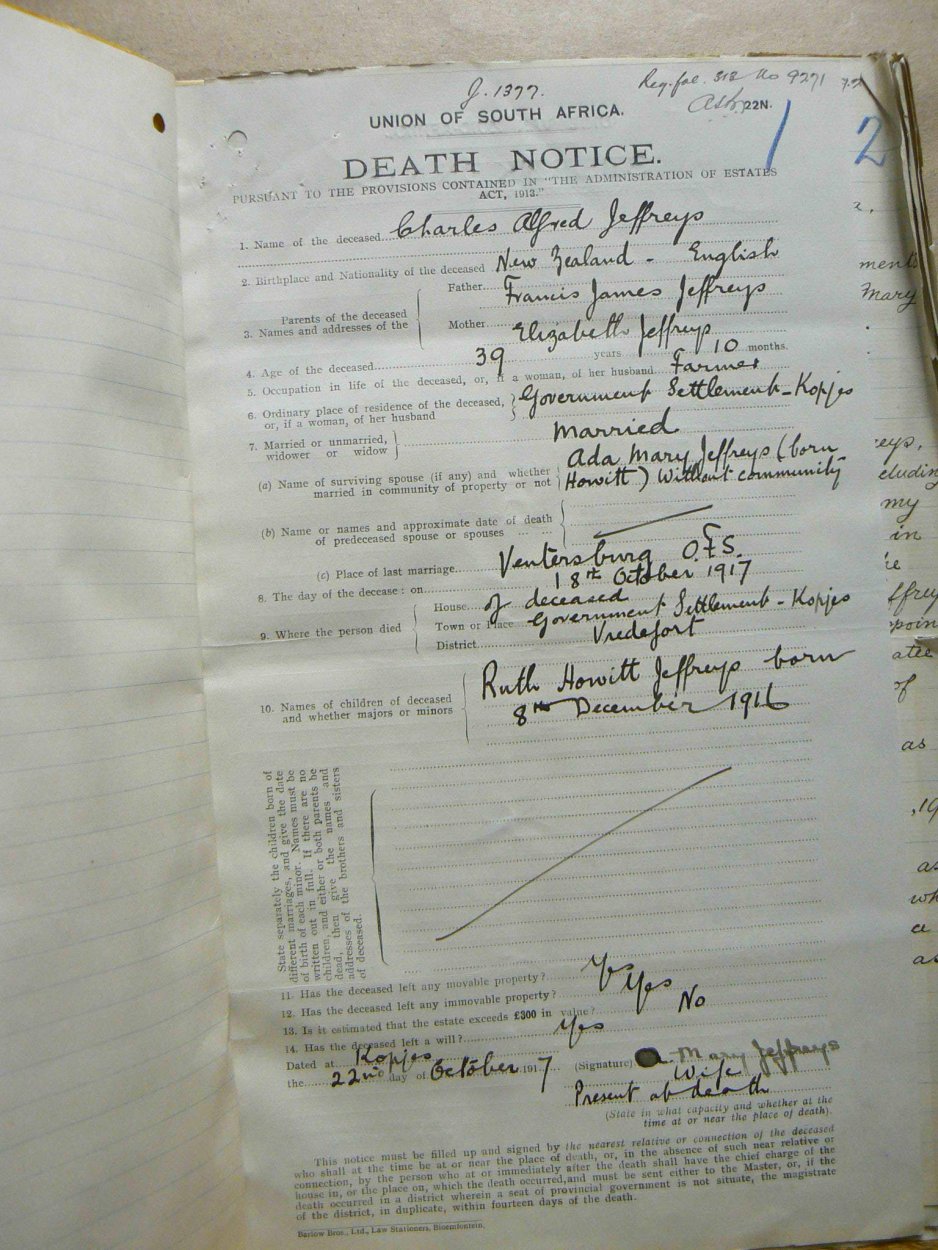 J. 1377.
Reg. fol. 312 No 9271
22N.
1
2
UNION OF SOUTH AFRICA.
DEATH NOTICE.
PURSUANT TO THE PROVISIONS CONTAINED IN "THE ADMINISTRATION OF ESTATES
ACT, 1913."
1. Name of the deceased Charles Alfred Jeffreys
2. Birthplace and Nationality of the deceased New Zealand - English
3. Names and addresses of the Parents of the deceased
Father Francis James Jeffreys
Mother Elizabeth Jeffreys
4. Age of the deceased 39 years 10 months.
5. Occupation in life of the deceased, or, if a woman, of her husband Farmer
6. Ordinary place of residence of the deceased, Government Settlement - Kopjes
or, if a woman, of her husband
7. Married or unmarried, Married
widower or widow
(a) Name of surviving spouse (if any) and whether Ada Mary Jeffreys (born
married in community of property or not Howitt) Without community
(b) Name or names and approximate date of death
of predeceased spouse or spouses
(c) Place of last marriage Ventersburg O.F.S.
8. The day of the decease: on 18th October 1917
9. Where the person died
House of deceased
Town or Place Government Settlement - Kopjes
District Vredefort
10. Names of children of deceased Ruth Howitt Jeffreys born
and whether majors or minors 8th December 1916
State separately the children born of
different marriages, and give the date
of birth of each minor. Names must be
written out in full. If there are no
children, and either or both parents be
dead, then give the names and
addresses of the brothers and sisters
of deceased.
11. Has the deceased left any movable property? Yes
12. Has the deceased left any immovable property? Yes
13. Is it estimated that the estate exceeds £300 in value? No
14. Has the deceased left a will? Yes
Dated at Kopjes
the 22nd day of October 1917
(Signature) A. Mary Jeffreys
Wife
Present at death
(State in what capacity and whether at the
time at or near the place of death).
This notice must be filled up and signed by the nearest relative or connection of the deceased
who shall at the time be at or near the place of death, or, in the absence of such near relative or
connection, by the person who at or immediately after the death shall have the chief charge of the
house in, or the place on, which the death occurred, and must be sent either to the Master, or, if the
death occurred in a district wherein a seat of provincial government is not situate, the magistrate
of the district, in duplicate, within fourteen days of the death.
Barlow Bros., Ltd., Law Stationers, Bloemfontein.
Mary
my
in
of
as
as
a
as